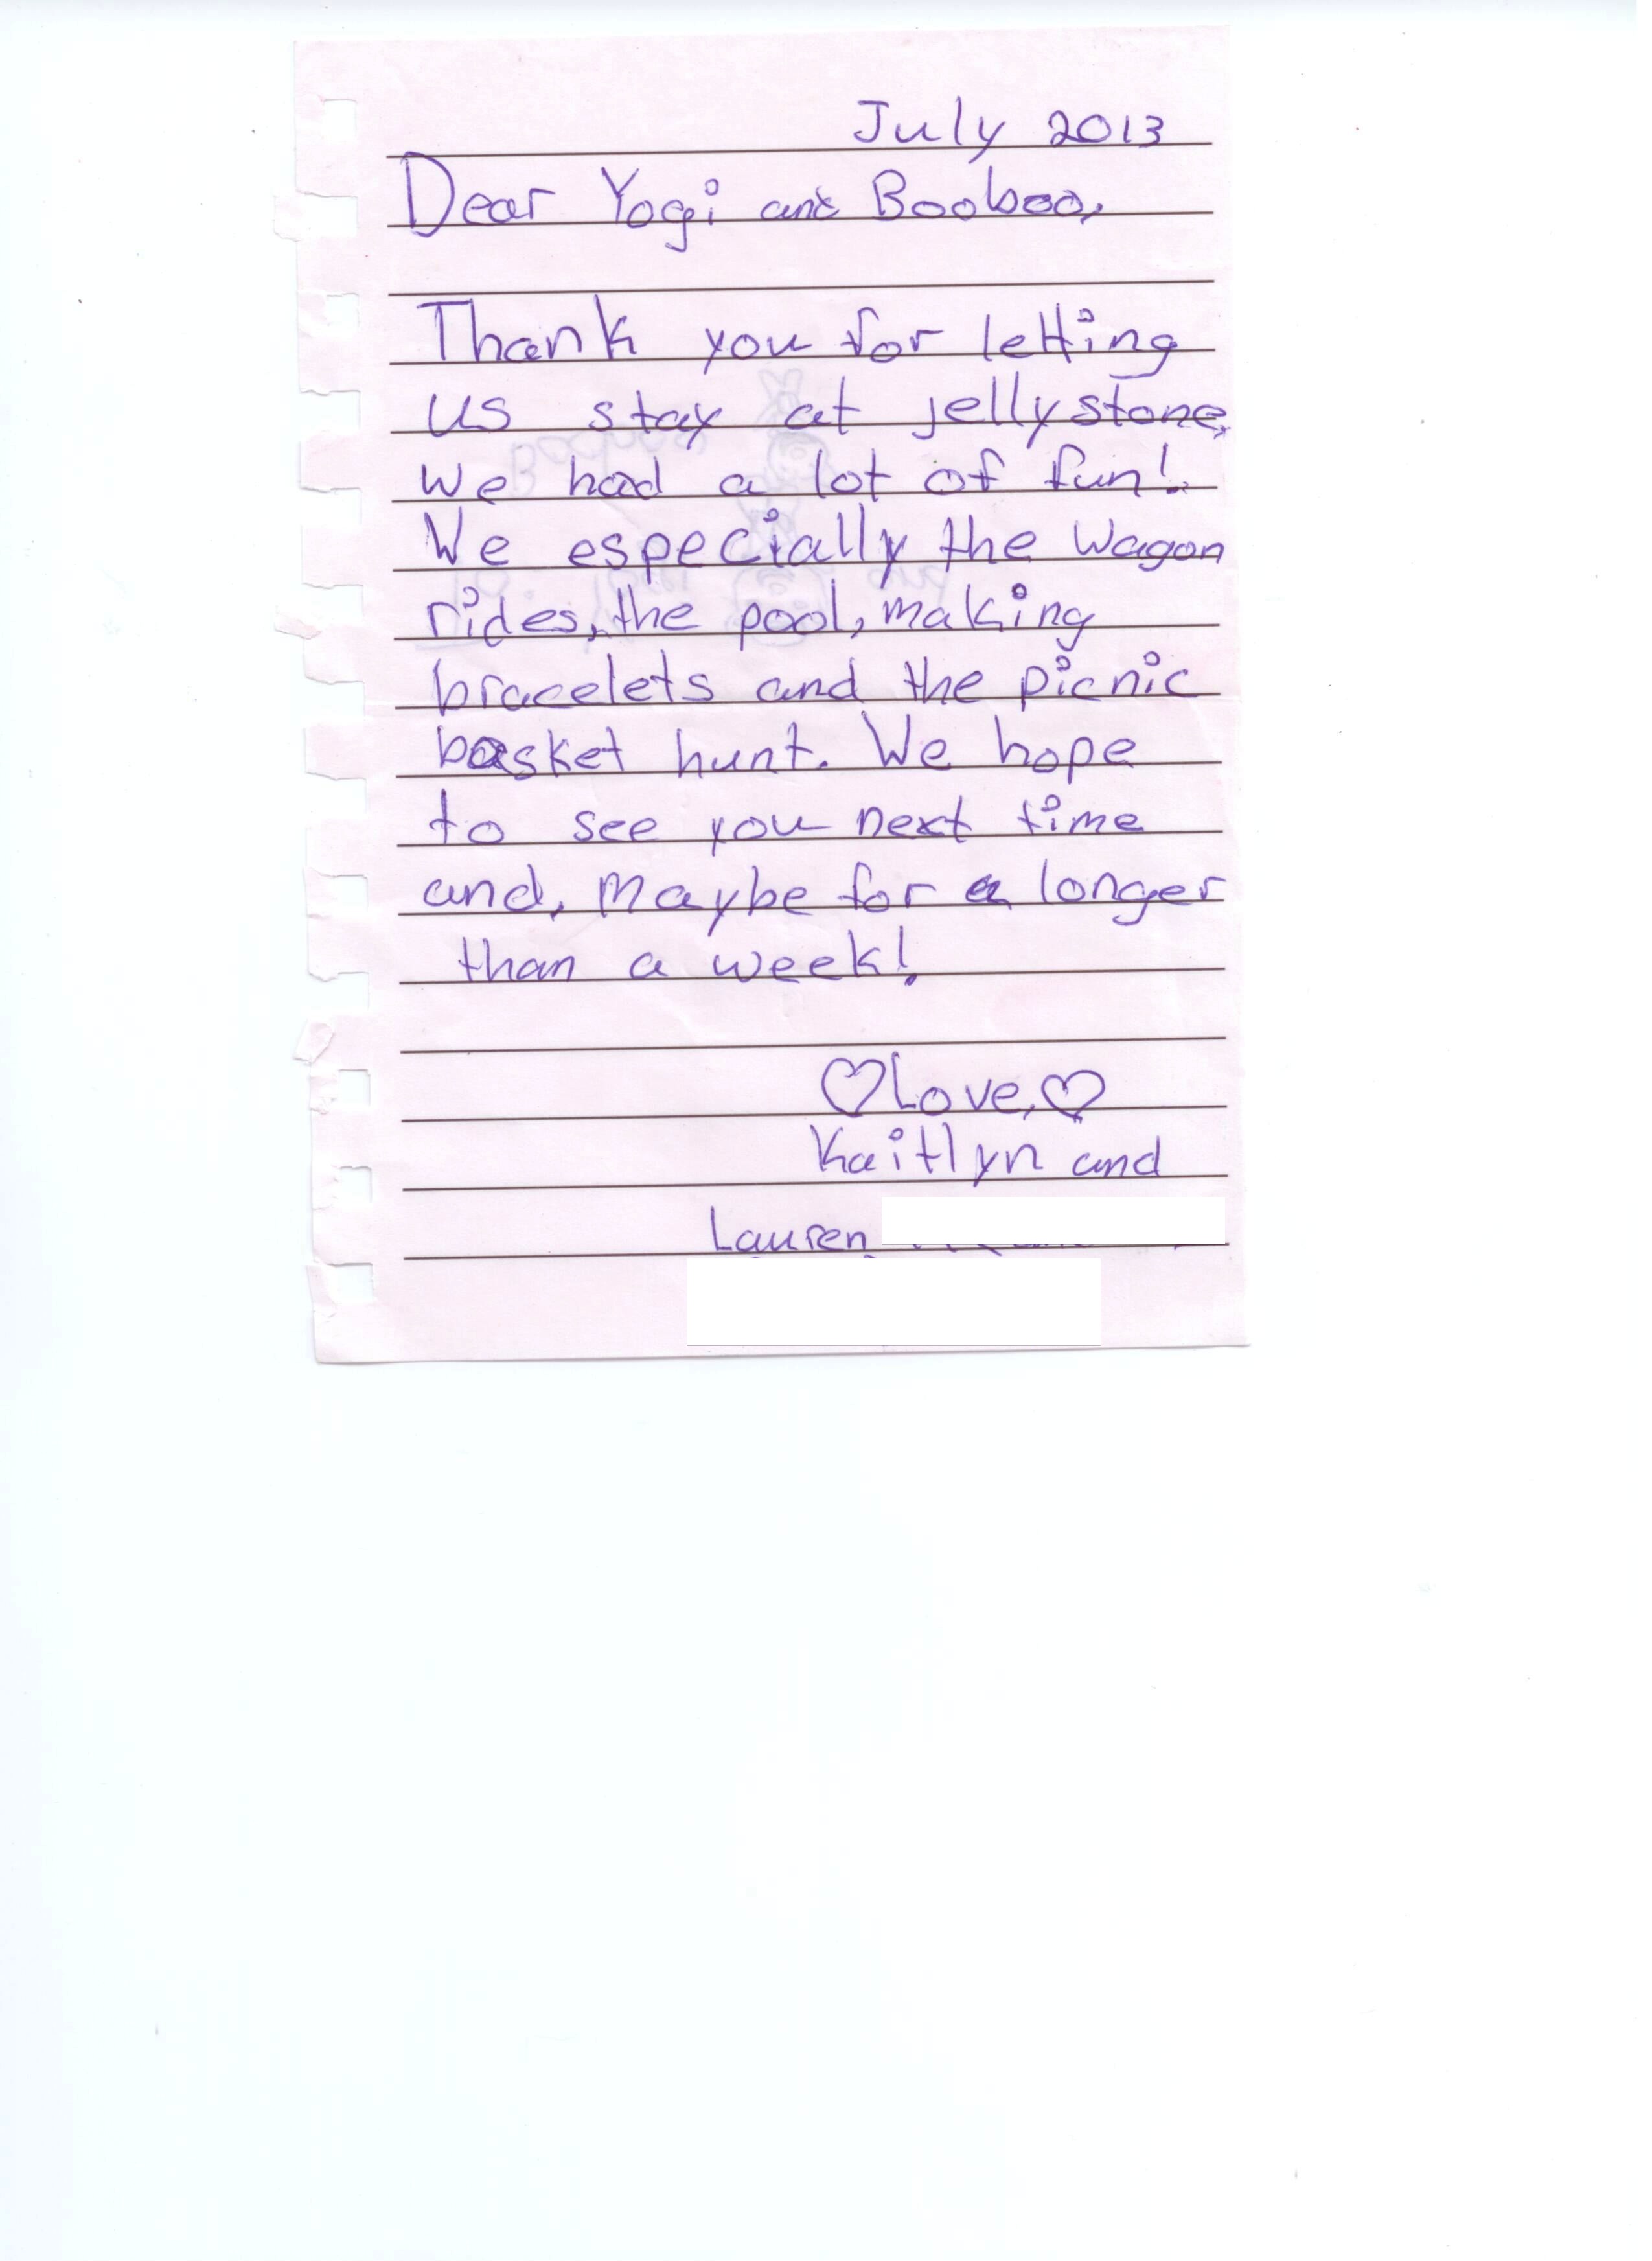 July 2013
Dear Yogi and Booboo,
Thank you for letting
us stay at jellystone.
We had a lot of fun!
We especially the Wagon
rides, the pool, making
bracelets and the picnic
basket hunt. We hope
to see you next time
and, maybe for a longer
than a week!
♡Love,♡
Kaitlyn and
Lauren